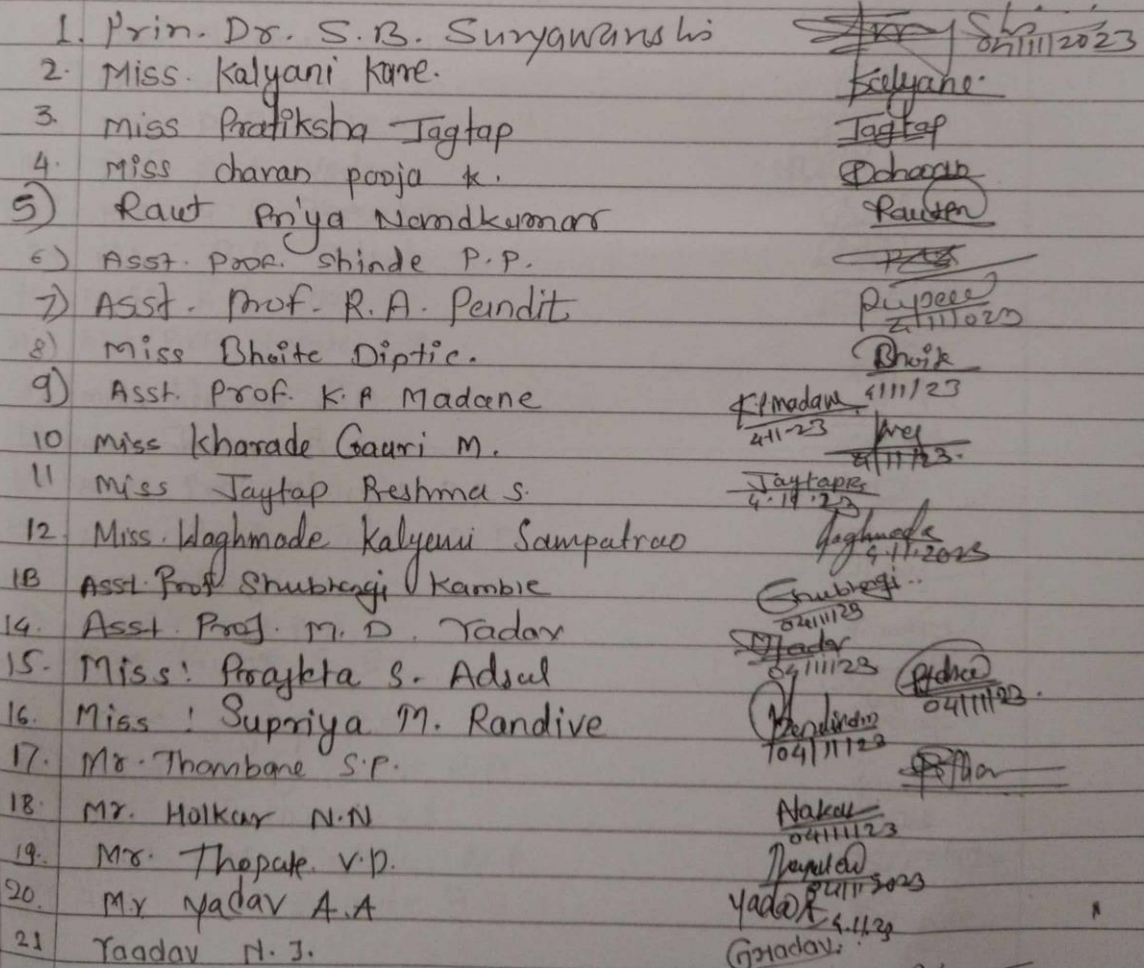 1. Prin. Dr. S.B. Suryawanshi 04/11/2023
2. Miss. Kalyani Kare. Kalyane.
3. Miss Pratiksha Jagtap Jagtap
4. Miss charan pooja K.
5) Raut Priya Nandkumar
6) Asst. Prof. Shinde P.P.
7) Asst. Prof. R.A. Pandit
8) Miss Bhoite Diptic. Bhoite
9) Asst. Prof. K.P Madane K.P Madane 4/11/23
4-11-23
10 Miss Kharade Gauri M.
4/11/23.
11 Miss Jaytap Reshma S. JaytapRs
12 Miss. Waghmode Kalyani Sampatrao Waghmode
4.11.2023
13 Asst. Prof Shubhangi Kamble Shubhangi
04/11/23
14. Asst. Prof. M.D. Yadav Yadav
04/11/23
15. Miss: Prajkta S. Adsul
04/11/23.
16. Miss : Supriya M. Randive
04/11/23
17. Mr. Thombare S.P.
18. Mr. Holkar N.N
04/11/23
19. Mr. Thopate. V.D.
04/11/2023
20. Mr Yadav A.A Yadav
4.11.23
21 Yaadav N.J.